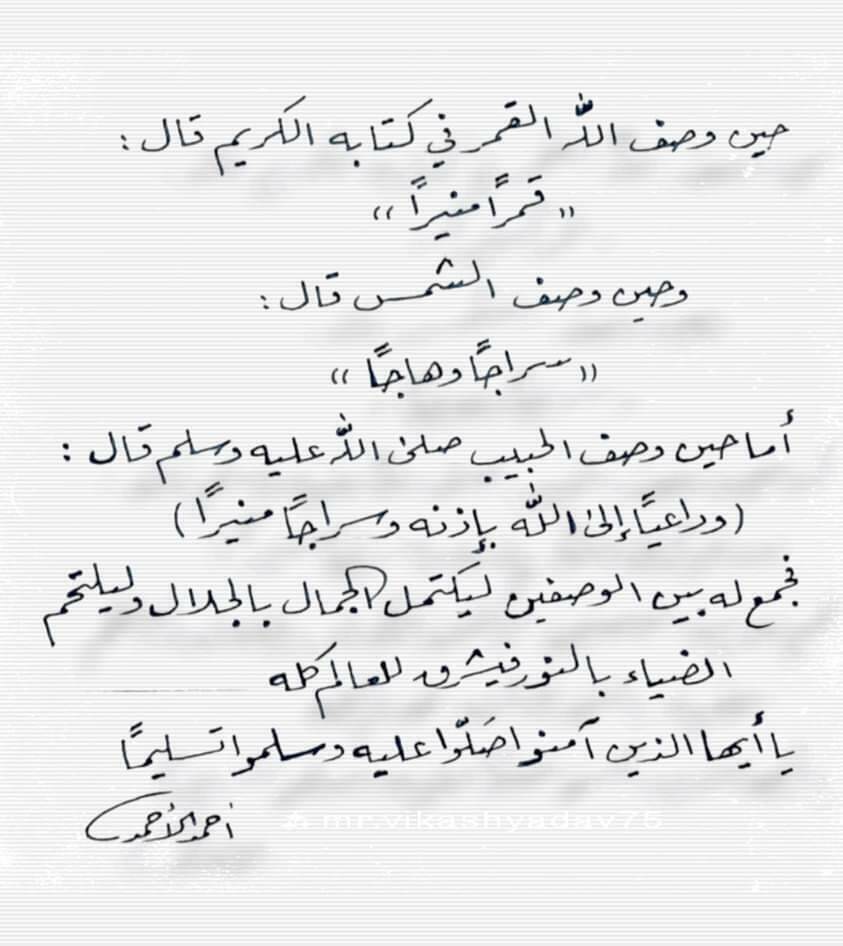 حين وصف الله القمر في كتابه الكريم قال :
(( قمرًا منيرًا ))
وحين وصف الشمس قال :
(( سراجًا وهاجًا ))
أما حين وصف الحبيب صلى الله عليه وسلم قال :
(وداعيًا إلى الله بإذنه وسراجًا منيرًا)
فجمع له بين الوصفين ليَكتمل الجمال بالجلال وليلتحم
الضياء بالنور فيشرق للعالم كله
يا أيها الذين آمنوا صَلّوا عليه وسلموا تسليمًا
أحمد الأحمد
mr.vikashyadav75